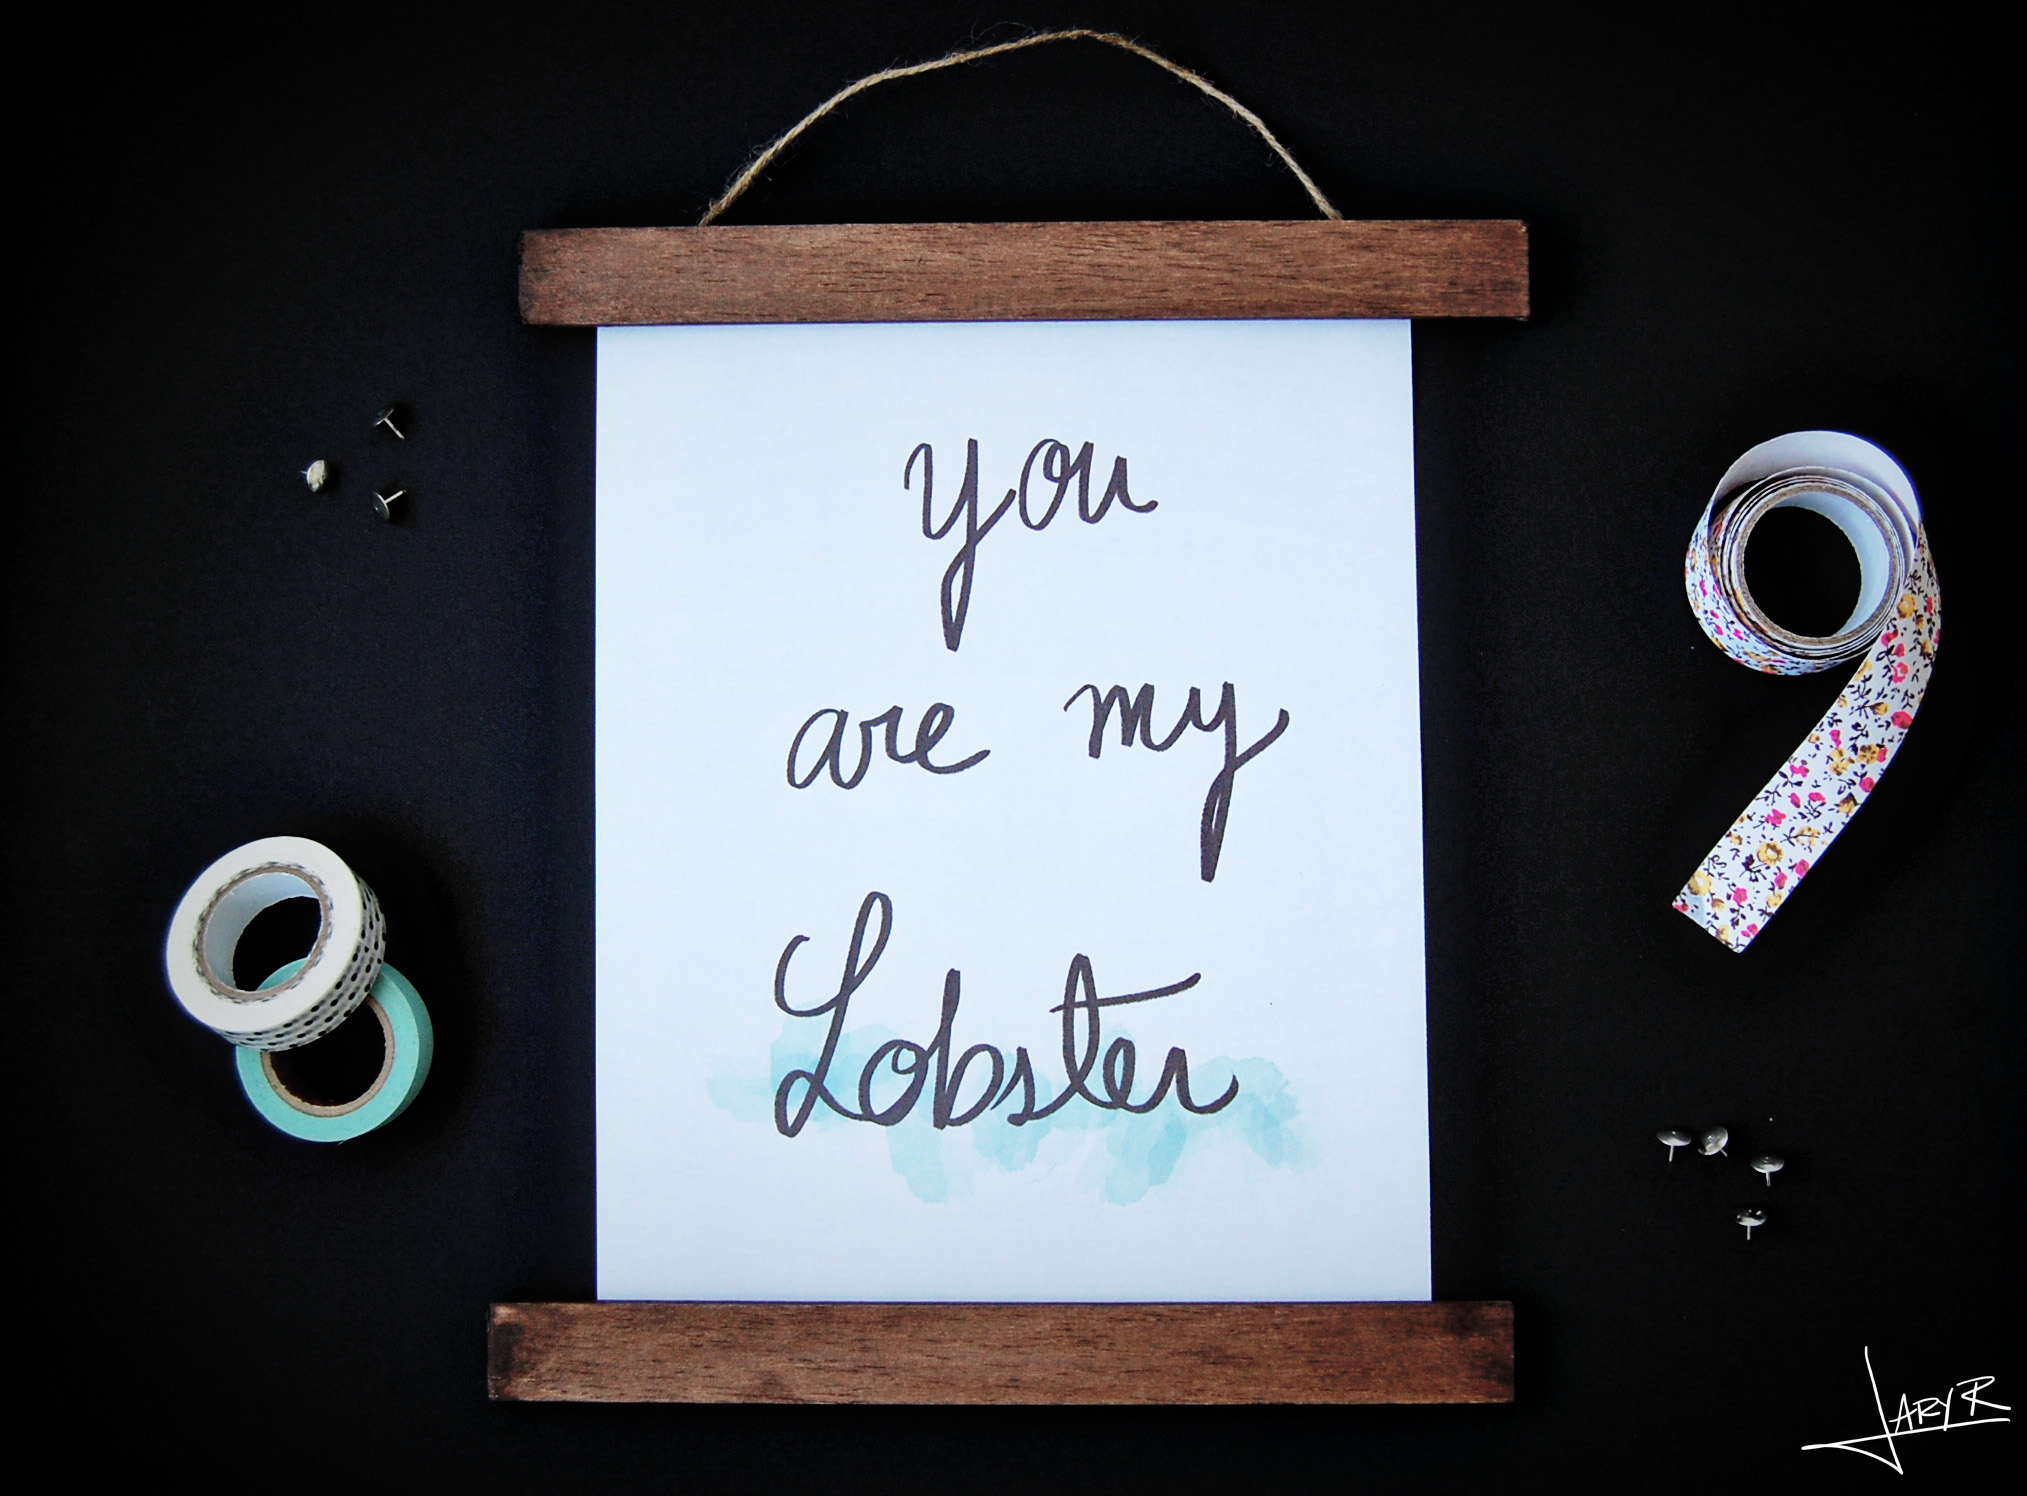 you
are my
Lobster
JARYR